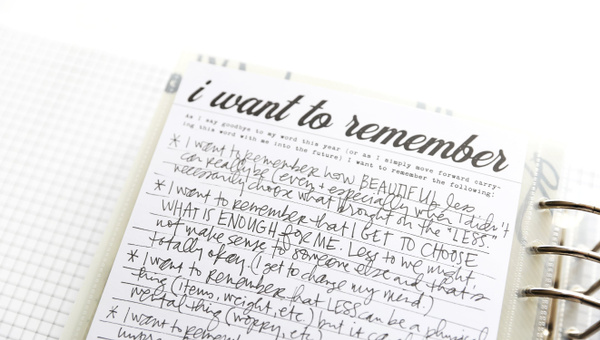 i want to remember
As I say goodbye to my word this year (or as I simply move forward carry-
ing this word with me into the future) I want to remember the following:
* I want to remember how BEAUTIFUL less
can really be (even + especially when I didn't
necessarily choose what brought on the "LESS."
* I want to remember that I GET TO CHOOSE
WHAT IS ENOUGH for ME. Less to me might
not make sense to someone else and that's
totally okay. (I get to change my mind)
* I want to remember that LESS can be a physical
thing (items, weight, etc.) but it can
mental thing (worry, etc.)
* I want to remember